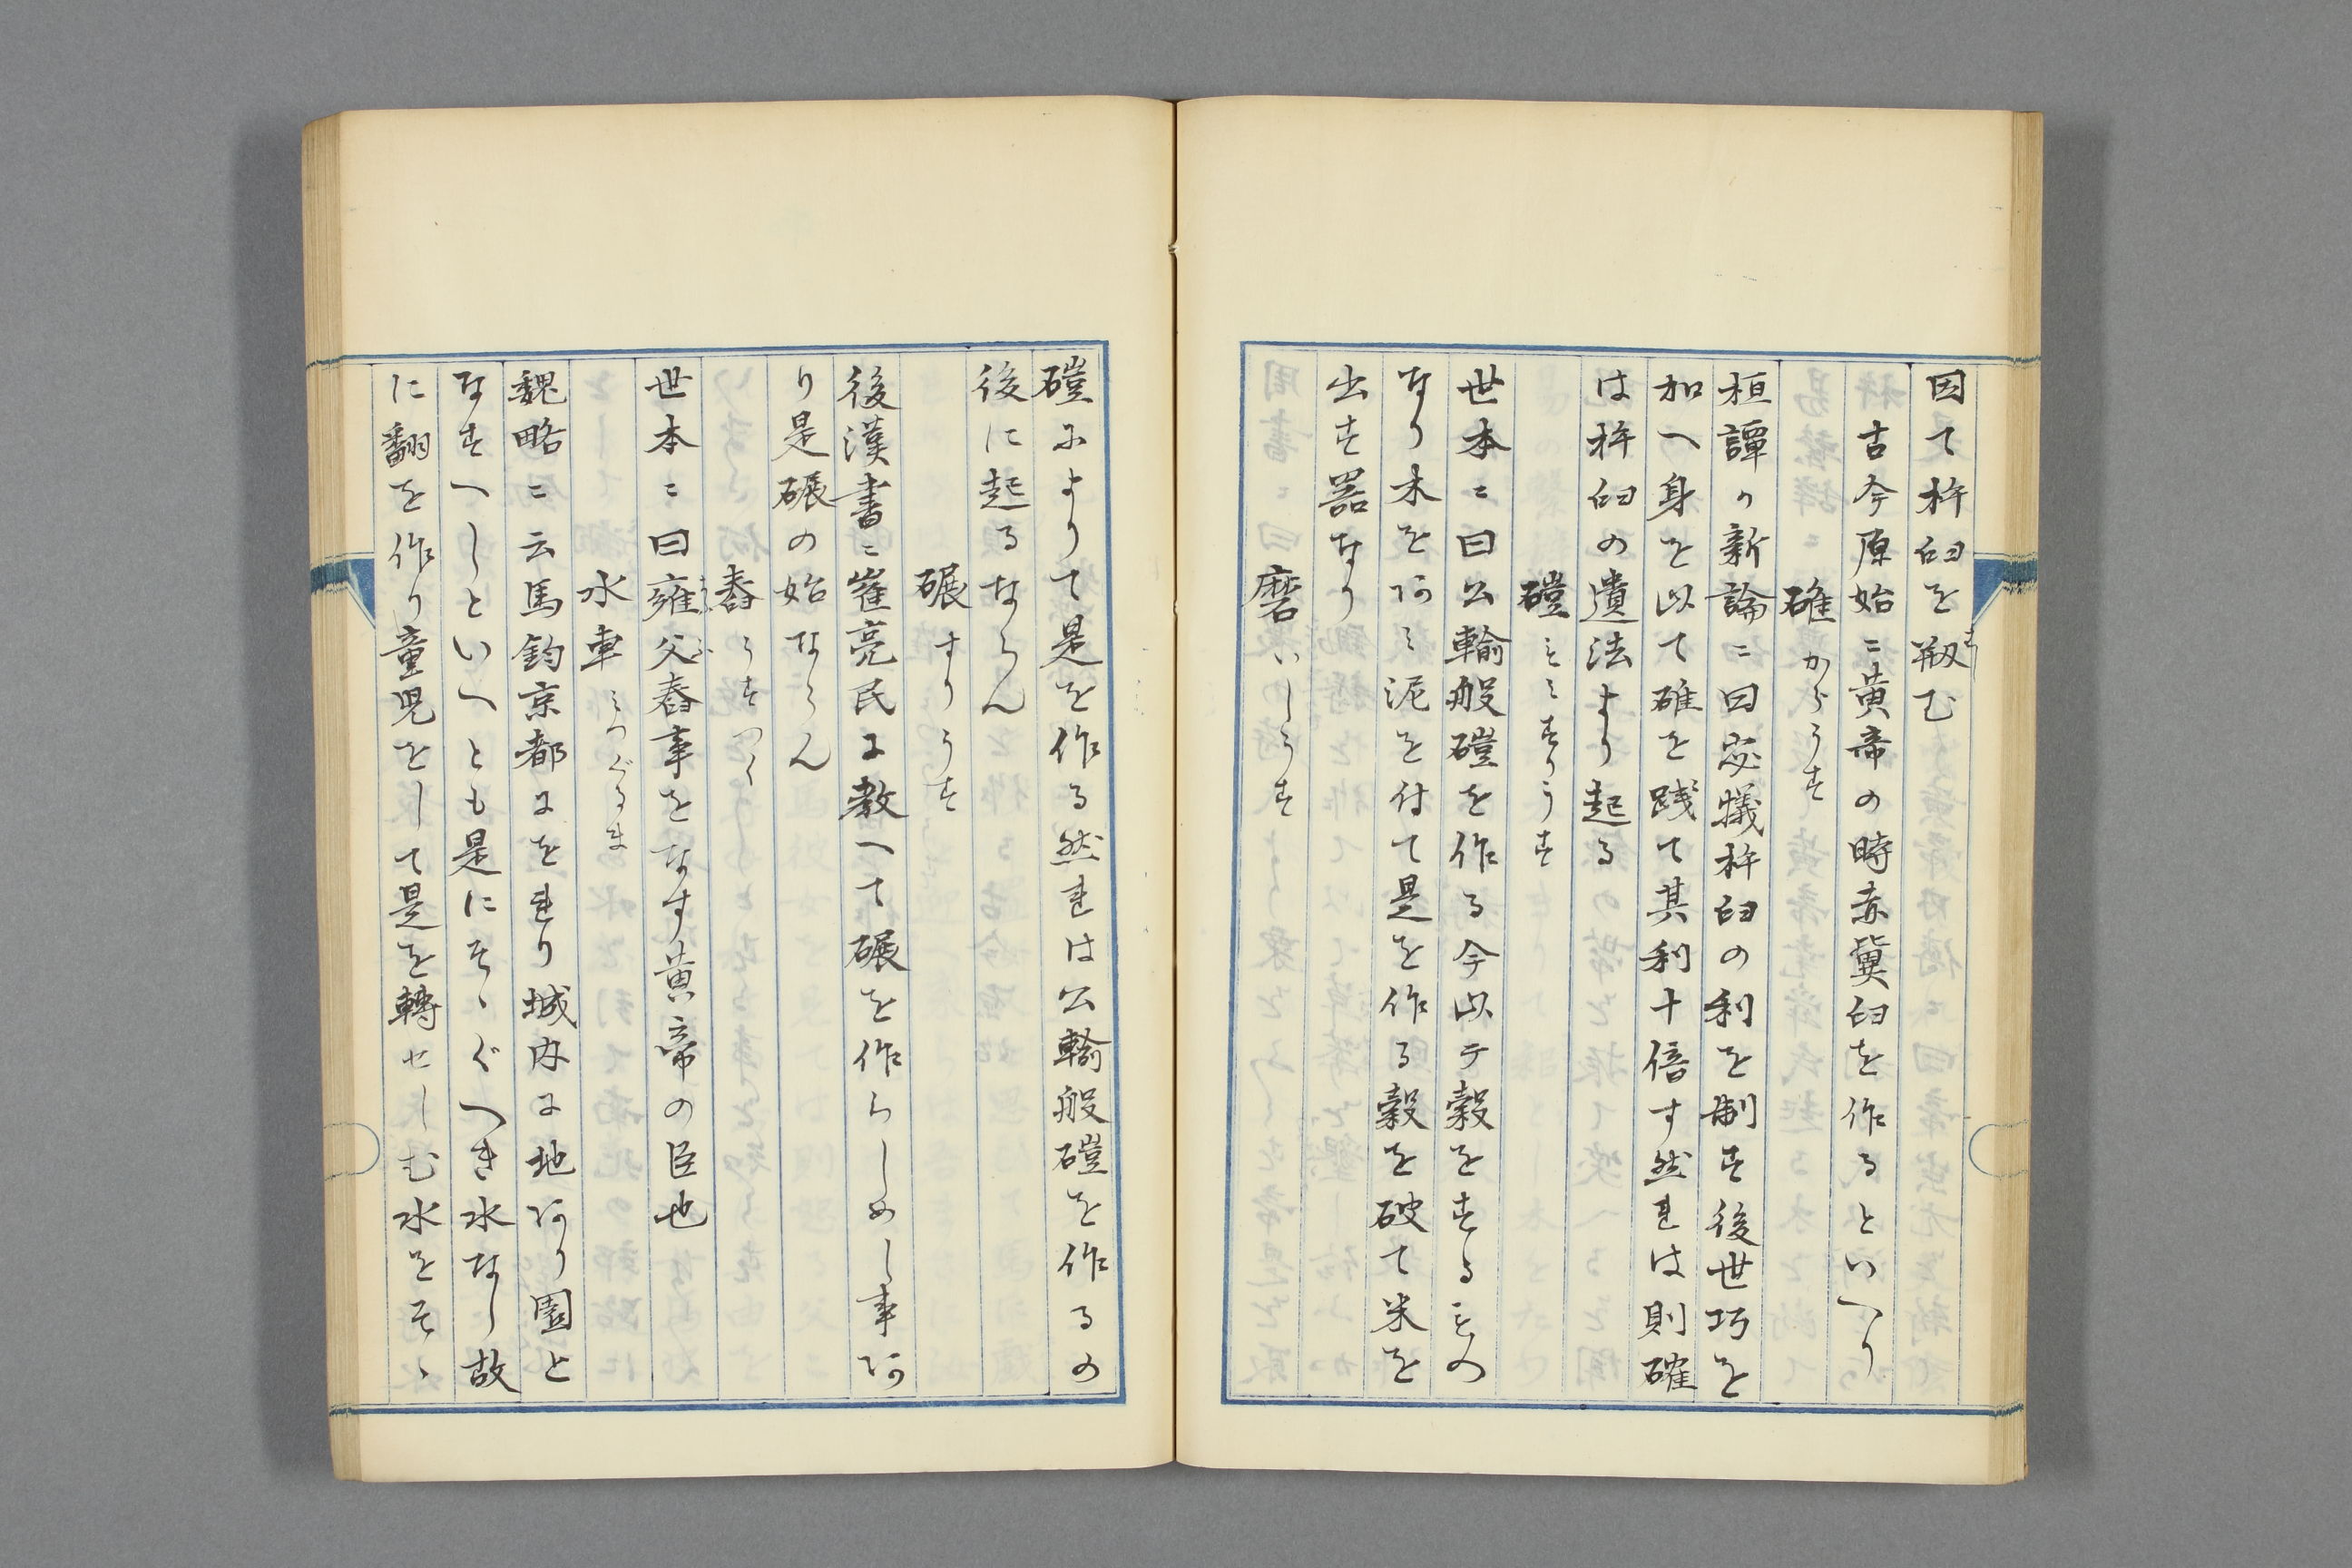 因て杵臼を剏む
古今原始ニ黄帝の時赤冀臼を作るといへり
碓 からうす
桓譚カ新論ニ曰宓犧杵臼の利を制す後世巧を
加へ身を以て碓を践て其利十倍す然れは則碓
は杵臼の遺法より起る
磑 もみすりうす
世本ニ曰公輸般磑を作る今以テ穀をするもの
なり木をアミ泥を付て是を作る穀を破て米を
出す器なり
磨 いしうす
磑によりて是を作る然れは公輸般磑を作るの
後に起るならん
碾 すりうす
後漢書ニ崔亮民に教へて碾を作らしめし事あ
り是碾の始ならん
舂 うすつく
世本ニ曰雍父舂事をなす黄帝の臣也
水車 みつぐるま
魏略ニ云馬鈞京都にをれり城内に地あり園と
なすへしといへとも是にそゝぐへき水なし故
に翻を作り童児をして是を轉せしむ水をそゝ